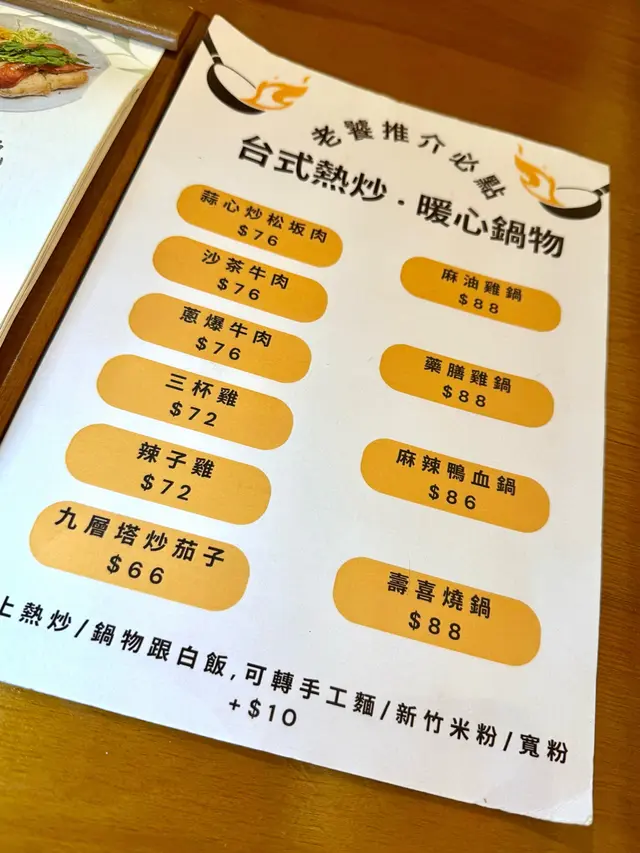 老饕推介必點
台式熱炒·暖心鍋物
蒜心炒松坂肉
$76
沙茶牛肉
$76
蔥爆牛肉
$76
三杯雞
$72
辣子雞
$72
九層塔炒茄子
$66
麻油雞鍋
$88
藥膳雞鍋
$88
麻辣鴨血鍋
$86
壽喜燒鍋
$88
上熱炒/鍋物跟白飯,可轉手工麵/新竹米粉/寬粉
+$10